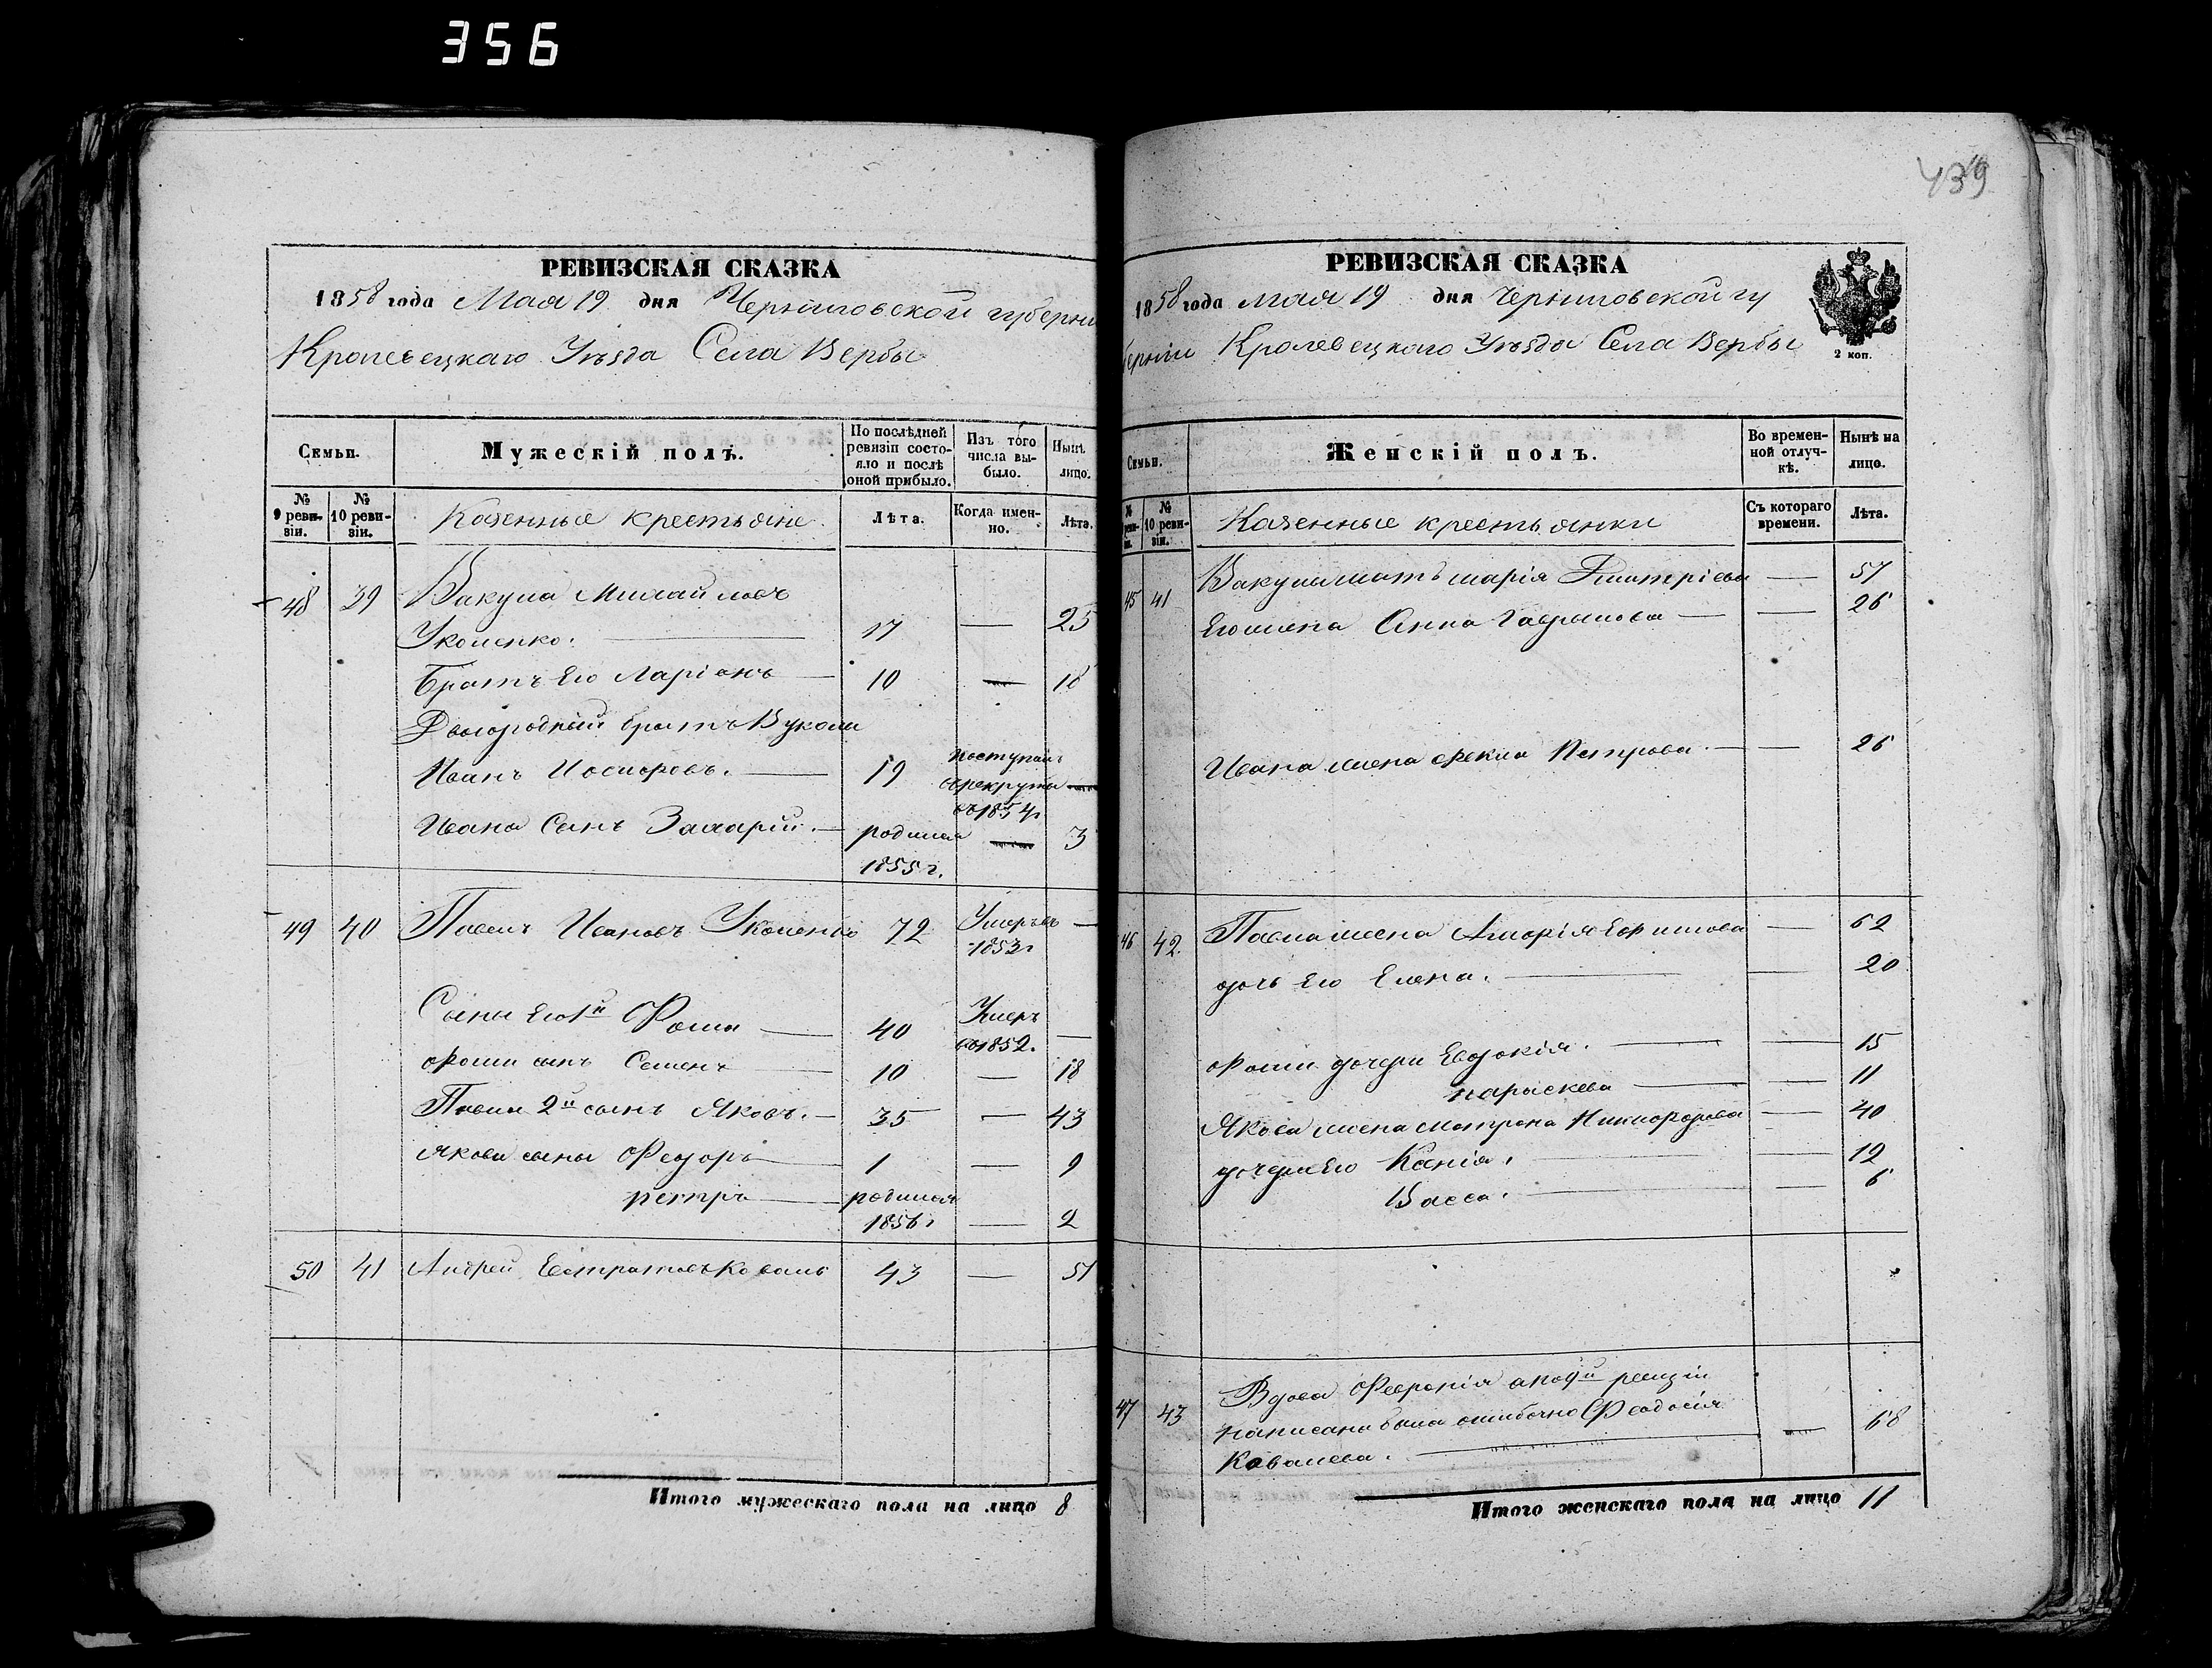 356
439
РЕВИЗСКАЯ СКАЗКА
1858 года Мая 19 дня Черниговской губерни
Кролевецкаго Уѣзда Села Вербы
Семьи.
Мужескій полъ.
По послѣдней ревизіи состояло и послѣ оной прибыло.
Изъ того числа выбыло.
Нынѣ лицо.
№ 9 ревизіи.
№ 10 ревизіи.
Казенные крестьяне
Лѣта.
Когда именно.
Лѣта.
48 39 Вакула Михайловъ
Укоменко. 17 — 25
Братъ Его Ларіонъ — 10 — 18
Двоюродный братъ Вукола
Иванъ Иосифовъ. — 19 поступилъ
въ рекруты —
въ 1854г
Ивана Сынъ Захарій. — родился — 3
1855 г.
49 40 Павелъ Ивановъ Укоменко 72 Умеръ въ —
1853г
Сыны Его 1й Фома — 40 Умеръ
въ 1852. —
Фомы сынъ Семенъ — 10 — 18
Павла 2й сынъ Яковъ. — 35 — 43
Якова сыны Федоръ — 1 — 9
Петръ — родился
1856г — 2
50 41 Андрей Евстратовъ Коваль 43 — 51
Итого мужескаго пола на лицо 8
РЕВИЗСКАЯ СКАЗКА
1858 года Мая 19 дня Черниговской гу
берніи Кролевецкаго Уѣзда Села Вербы
2 коп.
Семьи.
Женскій полъ.
Во временной отлучкѣ.
Нынѣ на лицо.
№ 10 ревизіи.
Казенные крестьянки
Съ котораго времени.
Лѣта.
45 41 Вакулы мать Марія Дмитріева — 57
Его жена Анна Гаврилова — — 26
Ивана жена Фекла Петрова. — — 26
46 42. Павла жена Марія Ефимова — 62
дочь Его Елена. — — 20
Фомы дочери Евдокія. — — 15
Параскева — — 11
Якова жена Матрона Никифорова — 40
дочери Его Ксенія. — — 12
Васса. — — 6
47 43 Вдова Февронія а по 9й ревизіи
написана была ошибочно Феодосія
Ковалева. — — 68
Итого женскаго пола на лицо 11